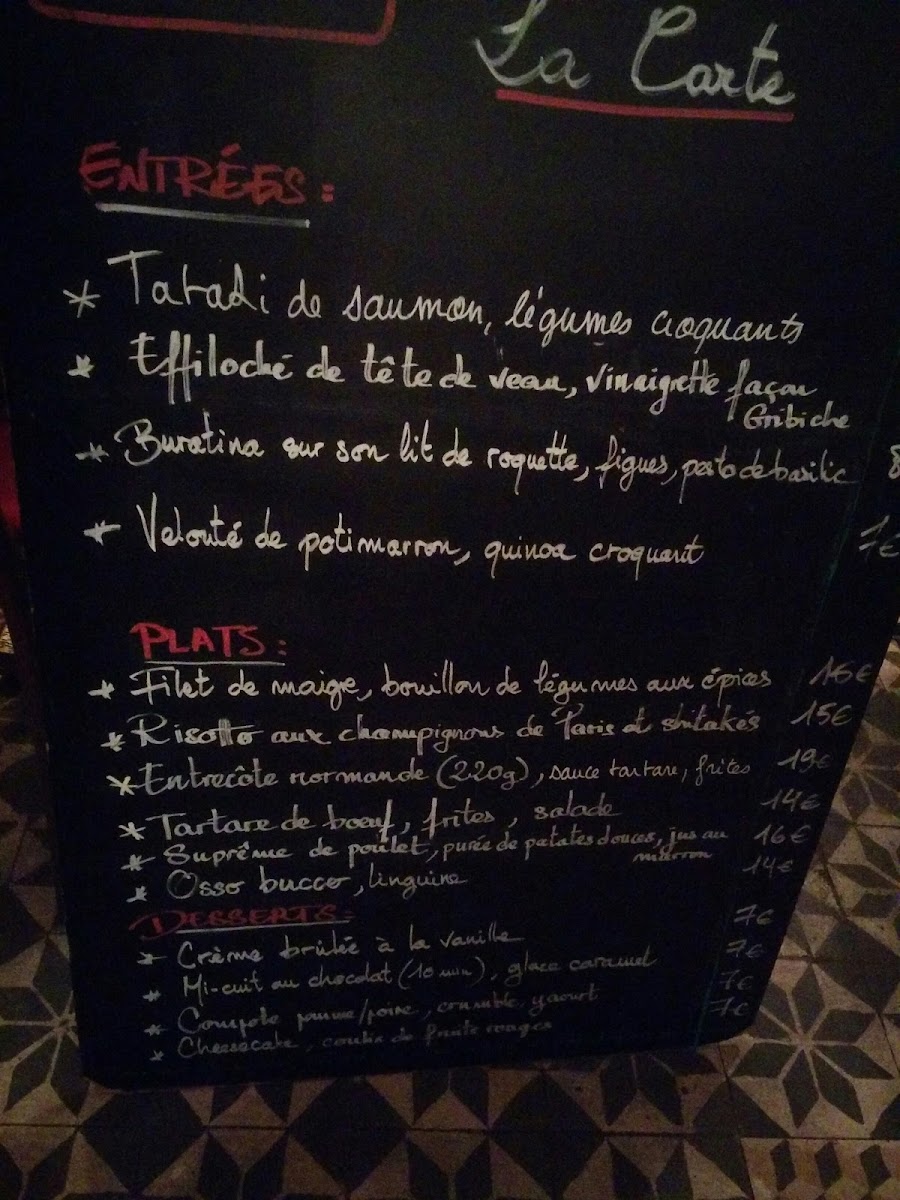 La Carte
ENTRÉES :
* Taradi de saumon, légumes croquants
* Effiloché de tête de veau, vinaigrette façon
Gribiche
* Buratina sur son lit de roquette, figues, pesto de basilic
* Velouté de potimarron, quinoa croquant 7€
PLATS :
* Filet de maigre, bouillon de légumes aux épices 16€
* Risotto aux champignons de Paris et shitakés 15€
* Entrecôte normande (220g), sauce tartare, frites 19€
* Tartare de bœuf, frites, salade 14€
* Suprême de poulet, purée de patates douces, jus au 16€
marron
* Osso bucco, linguine 14€
DESSERTS :
* Crème brûlée à la vanille 7€
* Mi-cuit au chocolat (10 min), glace caramel 7€
* Compote pomme/poire, crumble, yaourt 7€
* Cheesecake, coulis de fruits rouges 7€